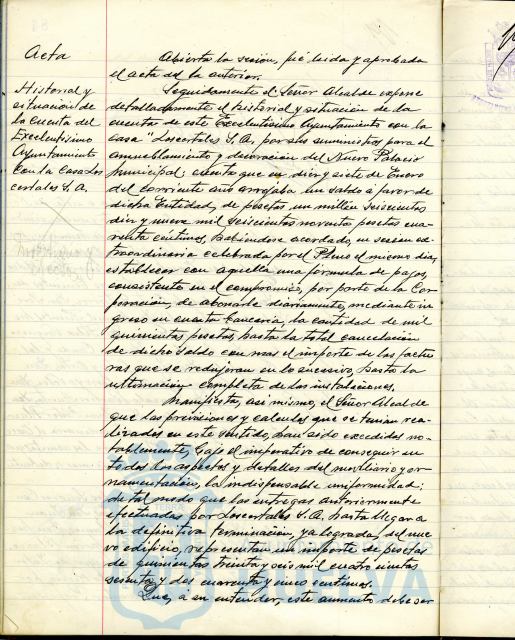 Acta
Historial y
situación de
la cuenta del
Excelentísimo
Ayuntamiento
con la Casa Los
certales S.A.
Abierta la sesión, fué leida y aprobada
el acta de la anterior.
Seguidamente el Señor Alcalde expone
detalladamente el historial y situación de la
cuenta de este Excelentísimo Ayuntamiento con la
casa "Loscertales S.A. por sus suministros para el
amueblamiento y decoración del Nuevo Palacio
Municipal cuenta que en diez y siete de Enero
del corriente año arrojaba un saldo a favor de
dicha Entidad, de pesetas un millón seiscientas
diez y nueve mil seiscientas noventa pesetas cua-
renta céntimos, habiéndose acordado, en sesión ex-
traordinaria celebrada por el Pleno el mismo dia,
establecer con aquella una formula de pago,
consistente en el compromiso, por parte de la Cor-
poración, de abonarle diariamente, mediante in-
greso en cuenta bancaria, la cantidad de mil
quinientas pesetas, hasta la total cancelación
de dicho saldo con mas el importe de las factu-
ras que se redujeran en lo sucesivo, hasta la
ultimación completa de las instalaciones.
Manifiesta, asi mismo, el Señor Alcalde
que las previsiones y calculos que se tenian rea-
lizados en este sentido, han sido excedidos no-
tablemente, bajo el imperativo de conseguir en
todos los aspectos y detalles del moviliario y or-
namentación, la indispensable uniformidad;
de tal modo que las entregas anteriormente
efectuadas por Loscertales S.A. hasta llegar a
la definitiva terminación, ya lograda, del nue-
vo edificio, representan un importe de pesetas
de quinientas treinta y seis mil cuatrocientas
sesenta y dos cuarenta y cinco centimos.
Que, a su entender, este aumento debe ser